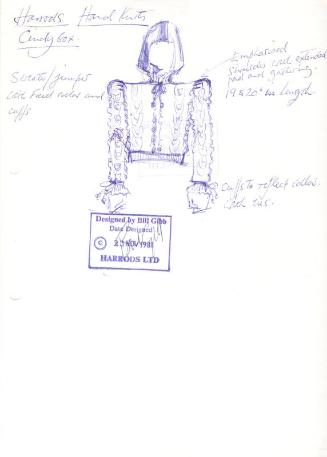 Harrods Hand Knits
Candy box.
Sweater/jumper
with frill collar and
cuffs
Emphasised
shoulders with extended
pad and gathering.
19 & 20" in length
Cuffs to reflect collar.
with ties.
Designed by Bill Gibb
Date Designed
© 23 NOV 1981
HARRODS LTD